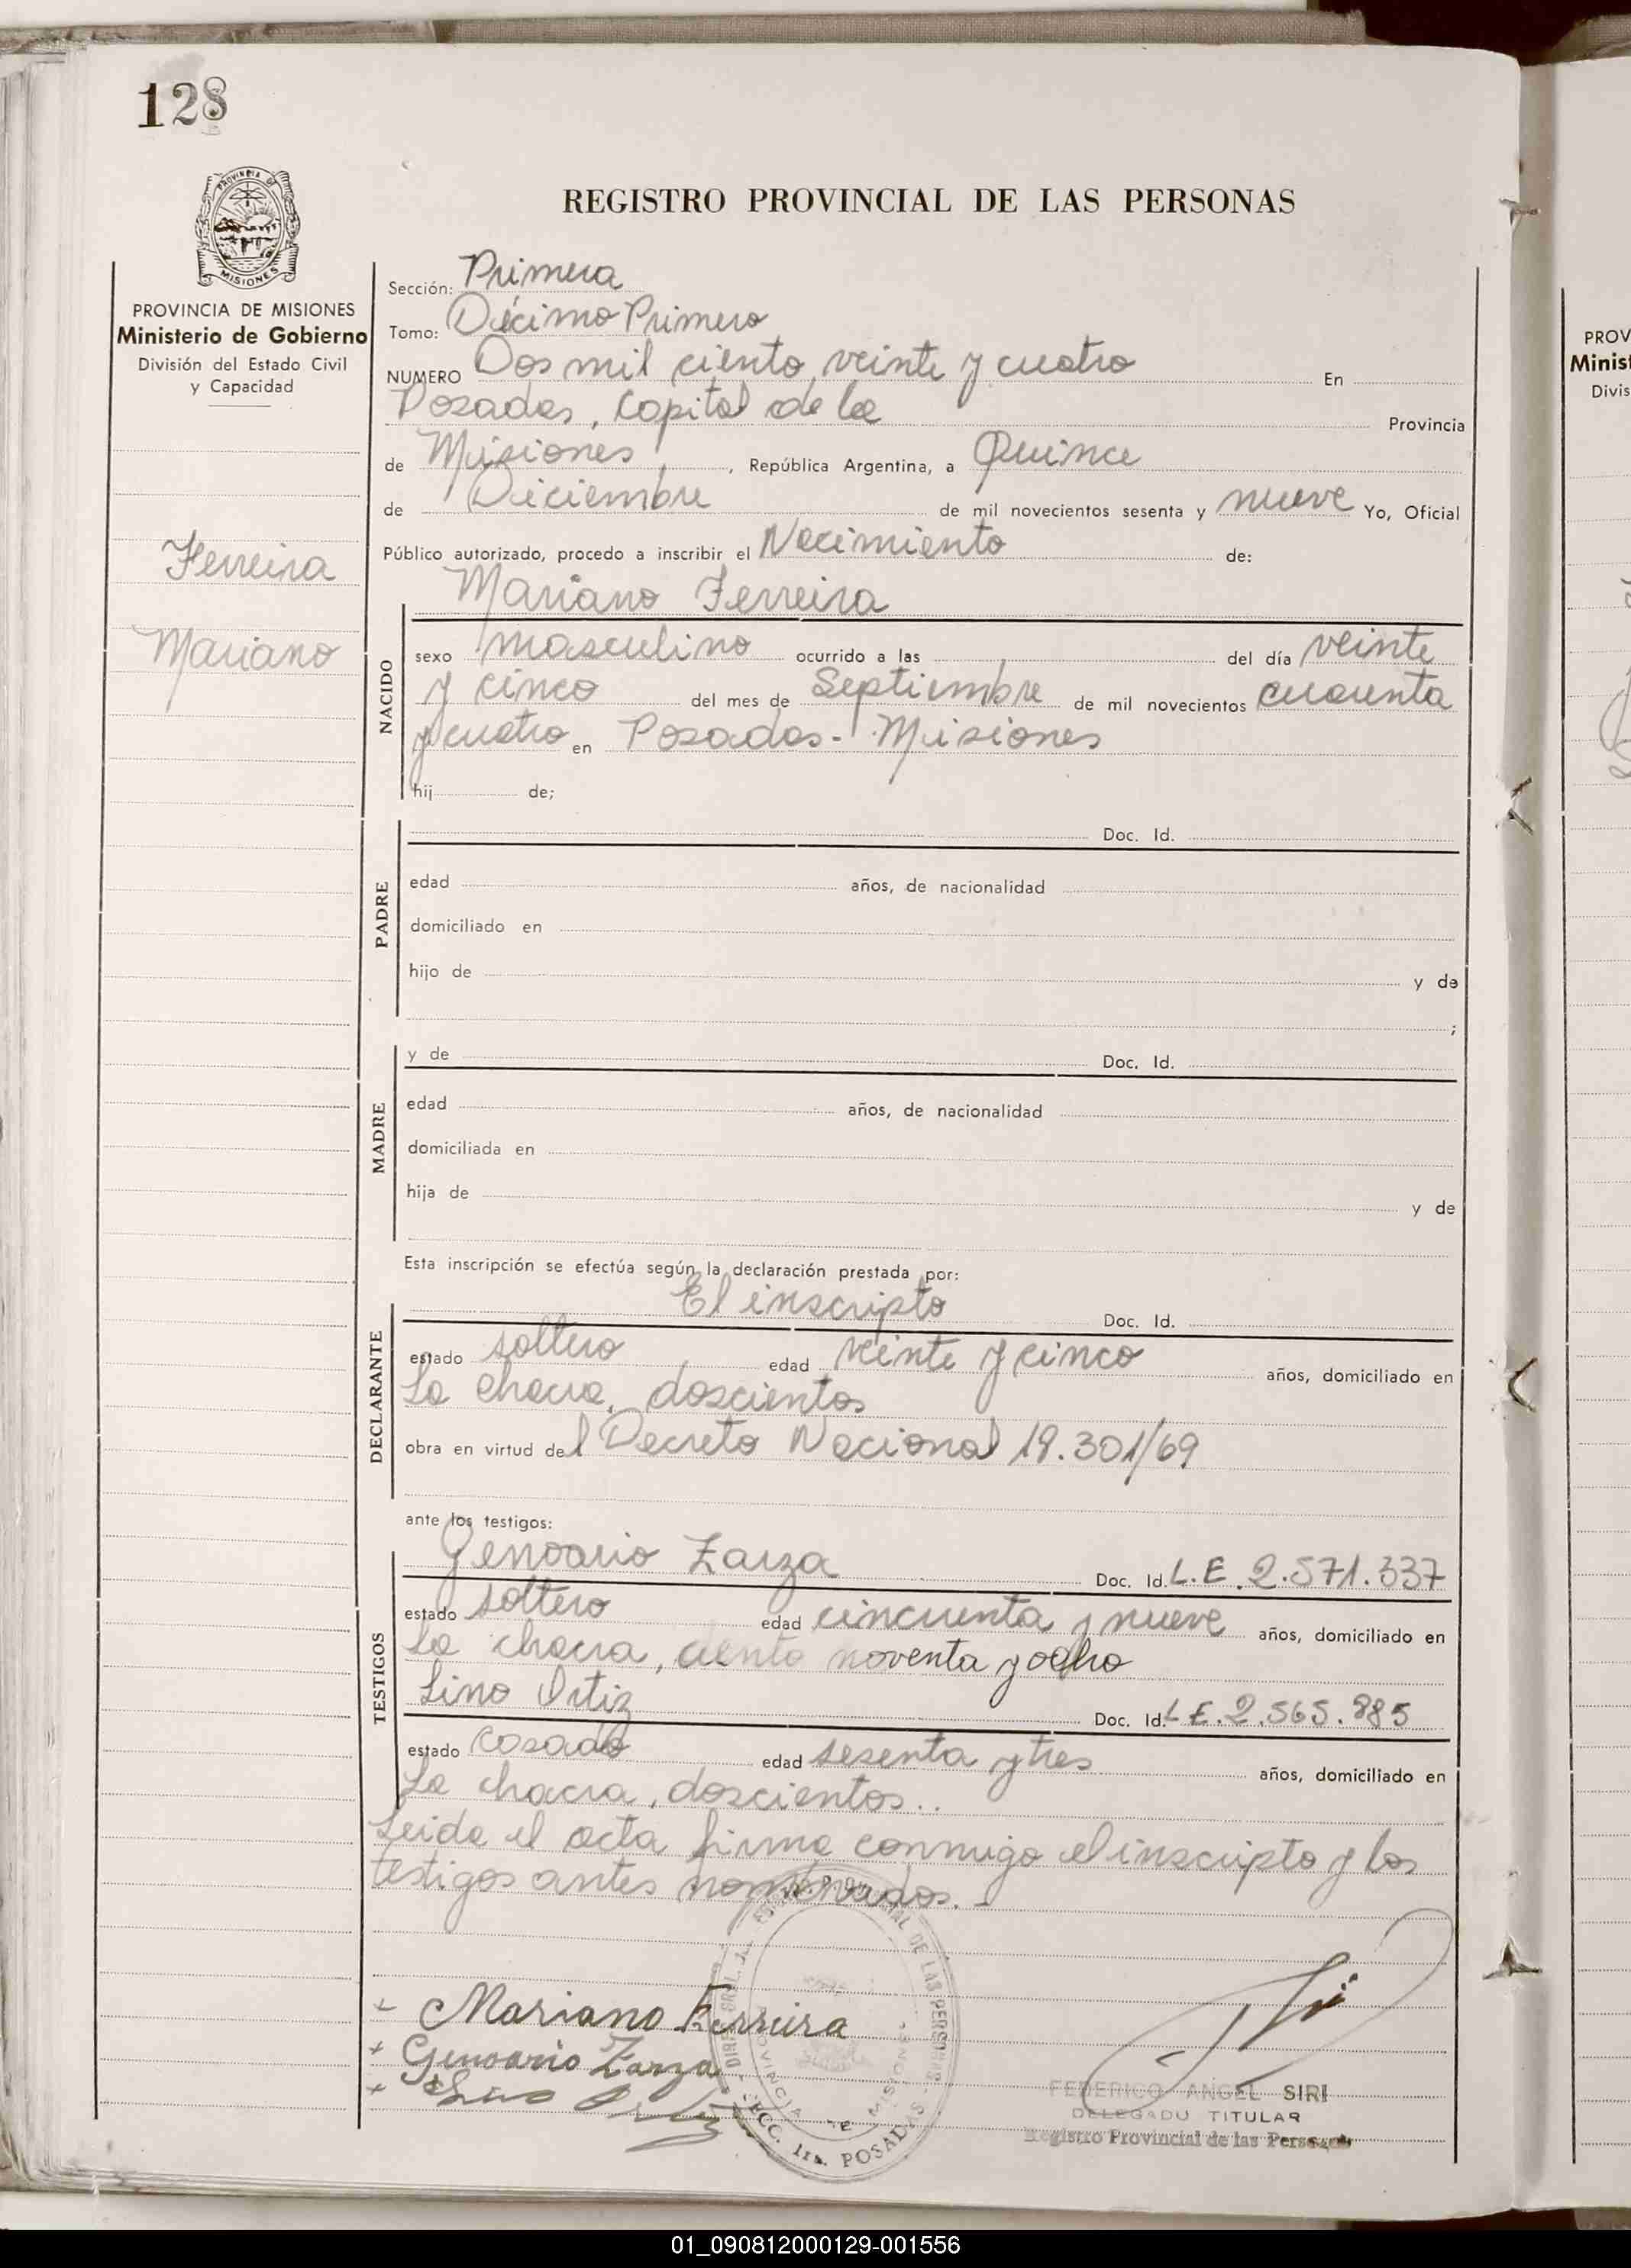 128
REGISTRO PROVINCIAL DE LAS PERSONAS
PROVINCIA DE MISIONES
Ministerio de Gobierno
División del Estado Civil
y Capacidad
Ferreira
Mariano
Sección: Primera
Tomo: Décimo Primero
NUMERO Dos mil ciento veinte y cuatro En
Posadas, Capital de la Provincia
de Misiones, República Argentina, a Quince
de Diciembre de mil novecientos sesenta y nueve Yo, Oficial
Público autorizado, procedo a inscribir el Nacimiento de:
Mariano Ferreira
NACIDO
sexo masculino ocurrido a las del día veinte
y cinco del mes de Septiembre de mil novecientos cuarenta
y cuatro en Posadas - Misiones
hij de;
PADRE
Doc. Id.
edad años, de nacionalidad
domiciliado en
hijo de y de
;
MADRE
y de Doc. Id.
edad años, de nacionalidad
domiciliada en
hija de y de
Esta inscripción se efectúa según la declaración prestada por:
DECLARANTE
El inscripto Doc. Id.
estado soltero edad veinte y cinco años, domiciliado en
La chacra, doscientos
obra en virtud del Decreto Nacional 18.301/69
ante los testigos:
TESTIGOS
Genoario Zarza Doc. Id. L.E. 2.571.337
estado soltero edad cincuenta y nueve años, domiciliado en
La chacra, ciento noventa y ocho
Lino Ortiz Doc. Id. L E. 2.565.885
estado casado edad sesenta y tres años, domiciliado en
La chacra, doscientos..
Leida el acta firma conmigo el inscripto y los
testigos antes nombrados. -
+ Mariano Ferreira
+ Genoario Zarza
+ Lino Ortiz
SECC. 1ra. POSADAS
FEDERICO ANGEL SIRI
DELEGADO TITULAR
Registro Provincial de las Personas
01_090812000129-001556